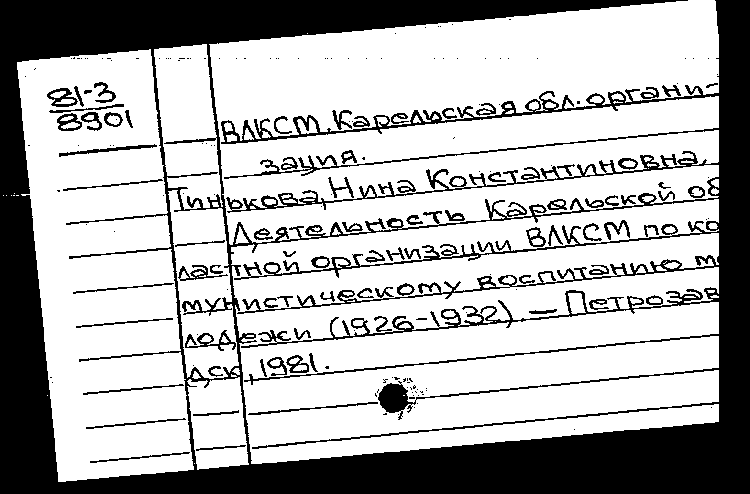 81-3
8901
ВЛКСМ. Карельская обл. органи-
зация.
Тинькова, Нина Константиновна.
Деятельность Карельской об
ластной организации ВЛКСМ по ко
мунистическому воспитанию мо
лодежи (1926-1932). — Петрозав
дск, 1981.